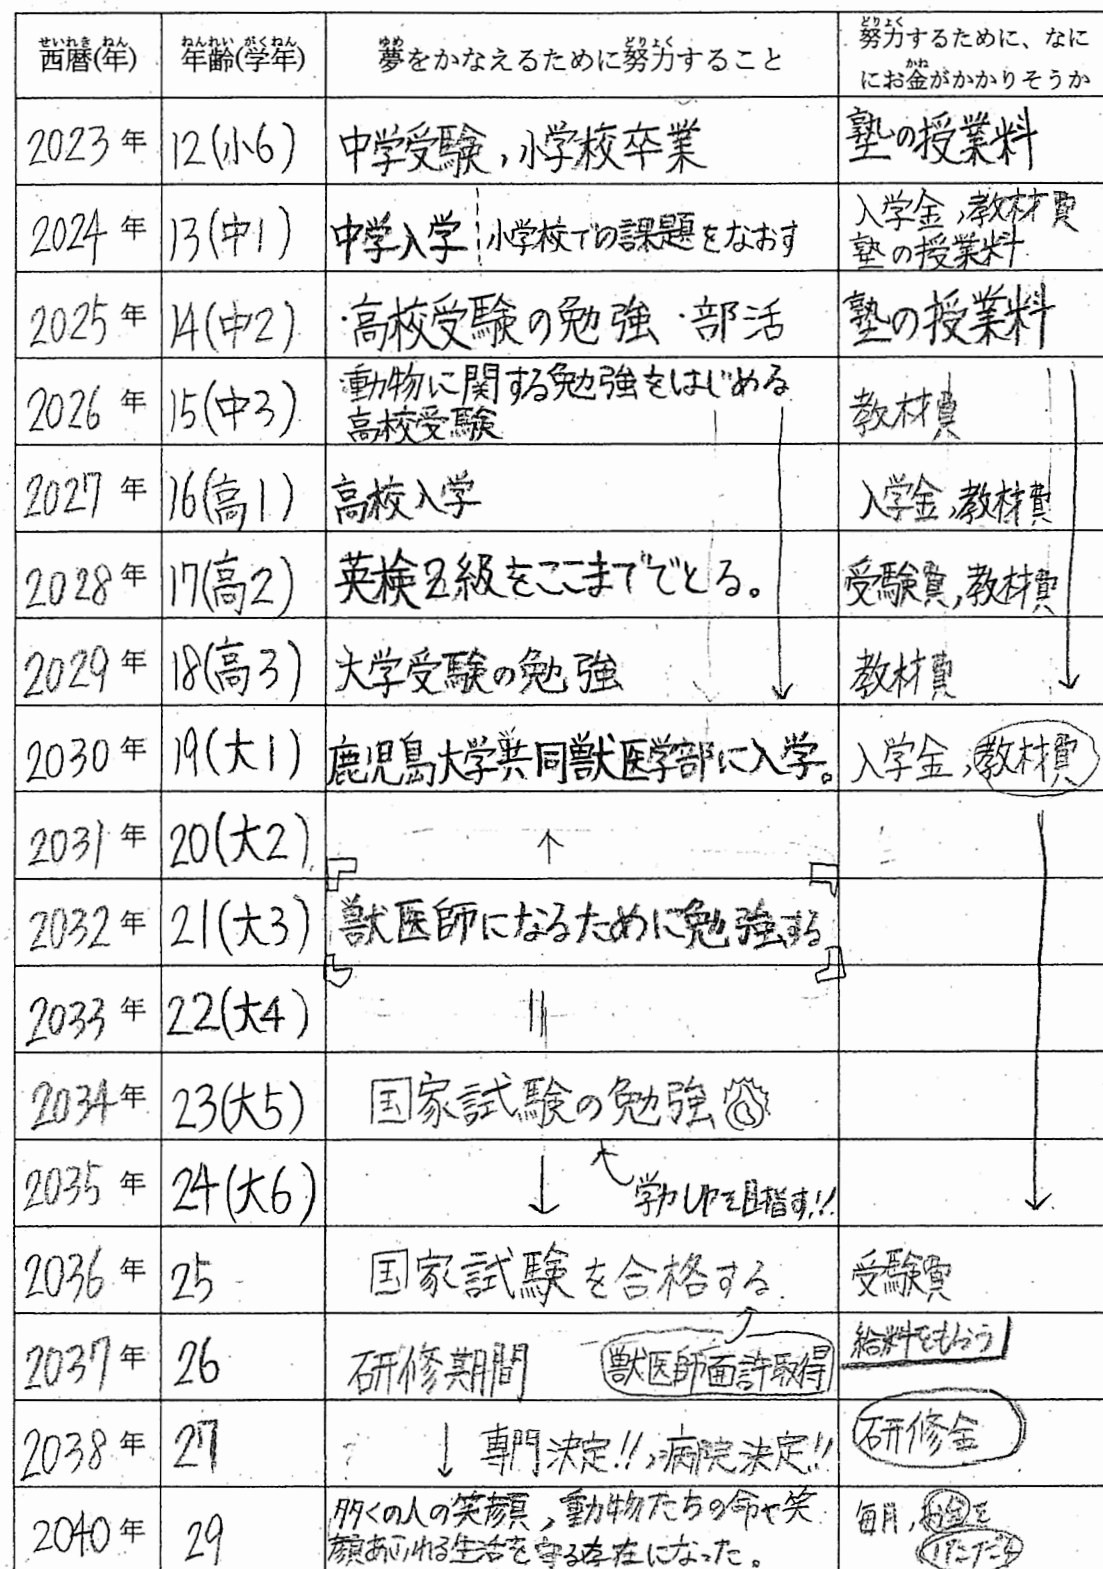 西暦(年) 年齢(学年) 夢をかなえるために努力すること 努力するために、なに
にお金がかかりそうか
2023年 12(小6) 中学受験,小学校卒業 塾の授業料
2024年 13(中1) 中学入学 小学校での課題をなおす 入学金,教材費
塾の授業料
2025年 14(中2) ・高校受験の勉強・部活 塾の授業料
2026年 15(中3) 動物に関する勉強をはじめる 教材費
高校受験
2027年 16(高1) 高校入学 入学金,教材費
2028年 17(高2) 英検2級をここまででとる。 受験費,教材費
2029年 18(高3) 大学受験の勉強 教材費
2030年 19(大1) 鹿児島大学共同獣医学部に入学。 入学金,教材費
2031年 20(大2) ↑
2032年 21(大3) 獣医師になるために勉強する
2033年 22(大4)
2034年 23(大5) 国家試験の勉強
2035年 24(大6) ↓ 学力UPを目指す!!
2036年 25 国家試験を合格する 受験費
2037年 26 研修期間 獣医師面許取得 給料をもらう
2038年 27 ↓ 専門決定!!,病院決定!! 研修金
2040年 29 多くの人の笑顔,動物たちの命や笑 毎月,お金を
顔あふれる生活を守る存在になった。 いただく